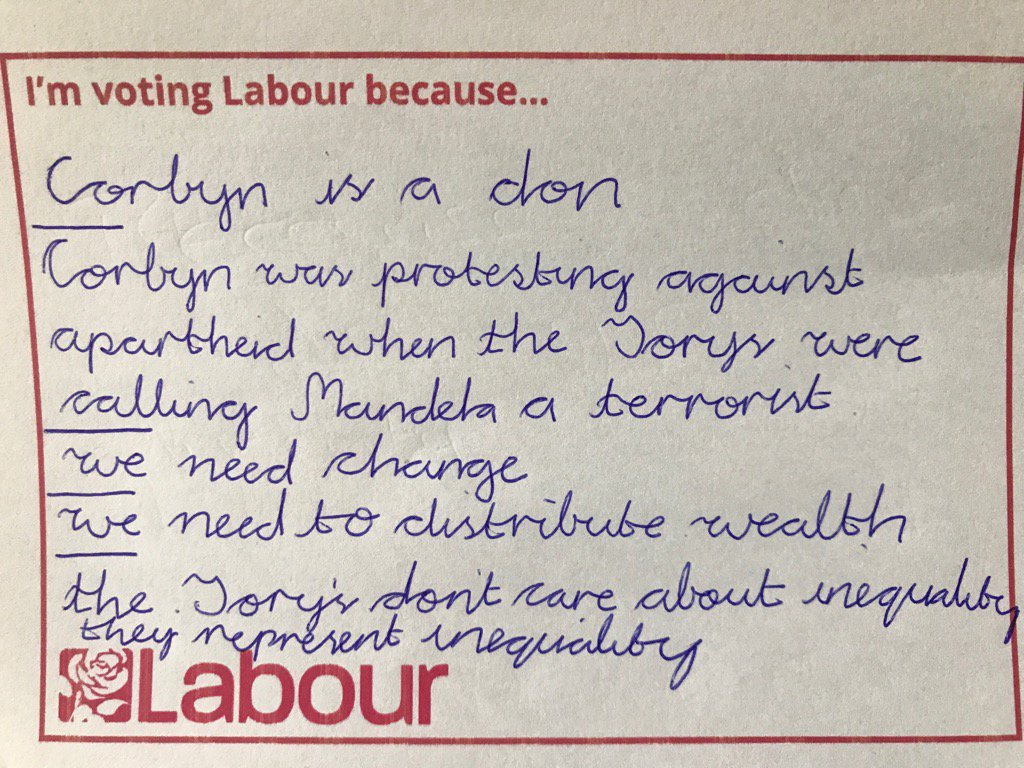 I'm voting Labour because...
Corbyn is a don
Corbyn was protesting against
apartheid when the Torys were
calling Mandela a terrorist
we need change
we need to distribute wealth
the Tory's don't care about inequality
they represent inequality
Labour